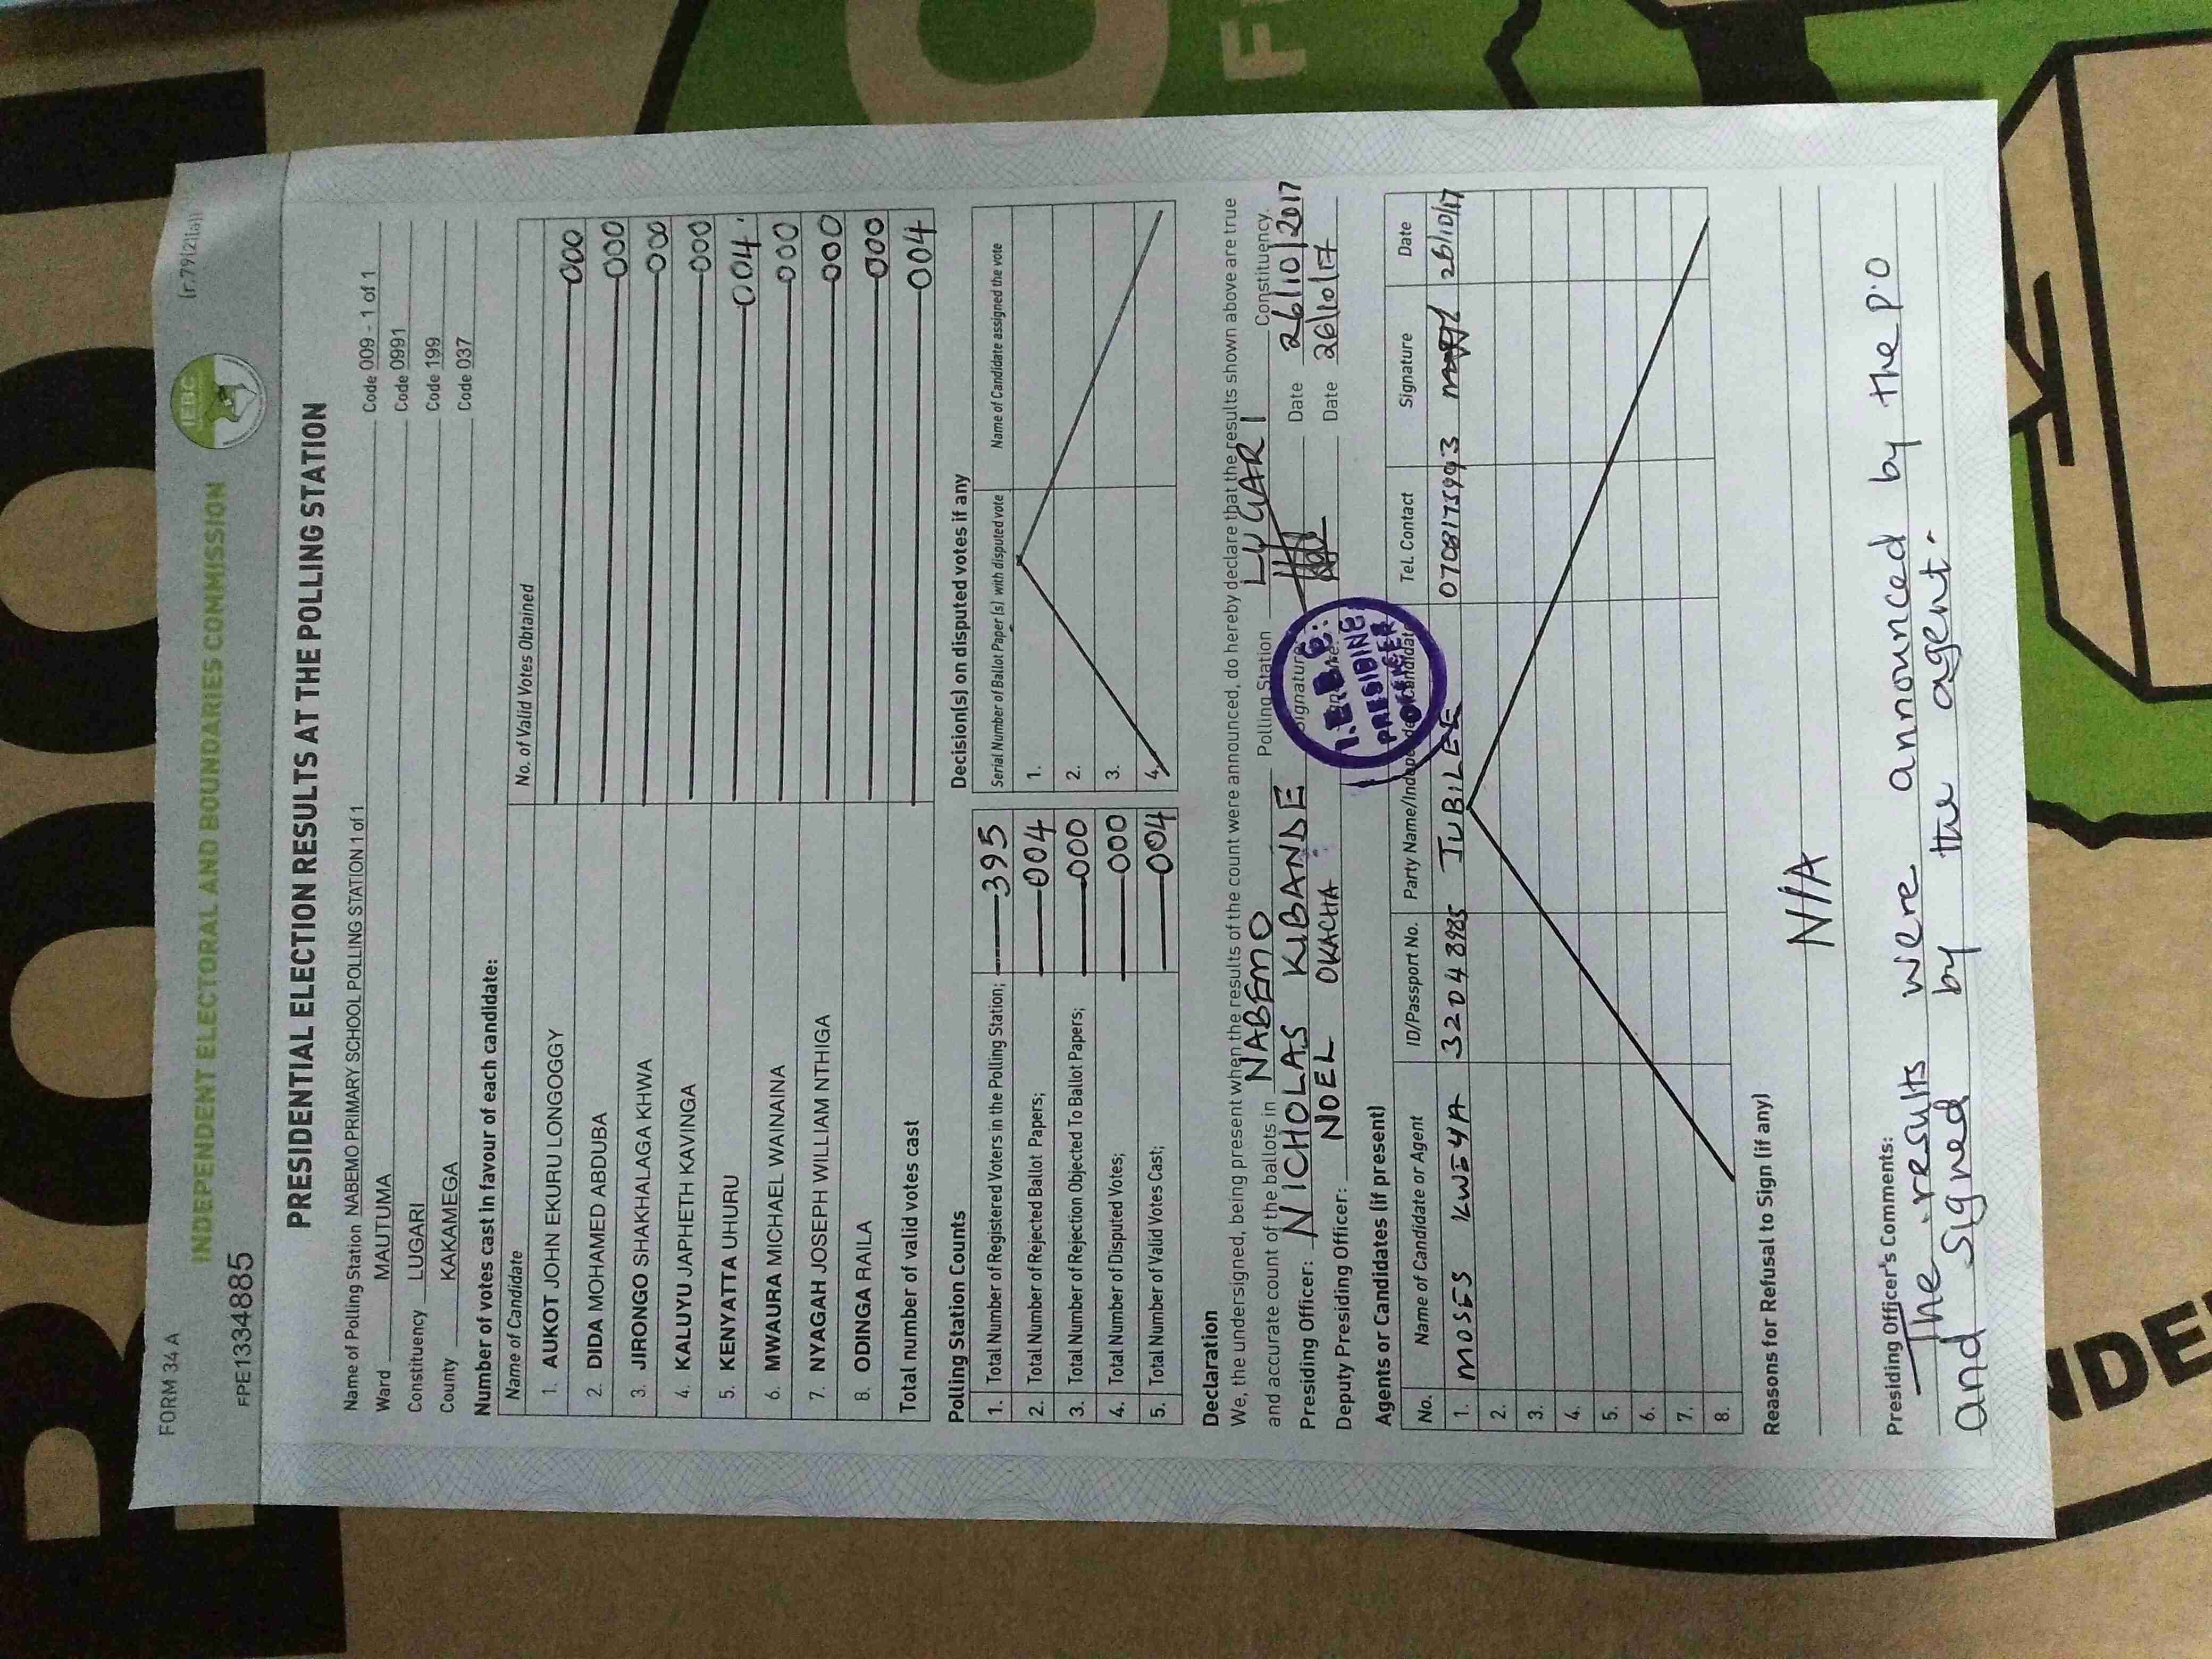 FORM 34 A
(r.79(2)(a))
IEBC
INDEPENDENT ELECTORAL AND BOUNDARIES COMMISSION
FPE1334885
PRESIDENTIAL ELECTION RESULTS AT THE POLLING STATION
Name of Polling Station NABEMO PRIMARY SCHOOL POLLING STATION 1 of 1 Code 009 - 1 of 1
Ward MAUTUMA Code 0991
Constituency LUGARI Code 199
County KAKAMEGA Code 037
Number of votes cast in favour of each candidate:
Name of Candidate No. of Valid Votes Obtained
1. AUKOT JOHN EKURU LONGOGGY 000
2. DIDA MOHAMED ABDUBA 000
3. JIRONGO SHAKHALAGA KHWA 000
4. KALUYU JAPHETH KAVINGA 000
5. KENYATTA UHURU 004
6. MWAURA MICHAEL WAINAINA 000
7. NYAGAH JOSEPH WILLIAM NTHIGA 000
8. ODINGA RAILA 000
Total number of valid votes cast 004
Polling Station Counts
1. Total Number of Registered Voters in the Polling Station; 395
2. Total Number of Rejected Ballot Papers; 004
3. Total Number of Rejection Objected To Ballot Papers; 000
4. Total Number of Disputed Votes; 000
5. Total Number of Valid Votes Cast; 004
Decision(s) on disputed votes if any
Serial Number of Ballot Paper (s) with disputed vote Name of Candidate assigned the vote
1.
2.
3.
4.
Declaration
We, the undersigned, being present when the results of the count were announced, do hereby declare that the results shown above are true
and accurate count of the ballots in NABEMO Polling Station LUGARI Constituency.
Presiding Officer: NICHOLAS KIBANDE Signature: Date 26/10/2017
Deputy Presiding Officer: NOEL OKACHA Date 26/10/17
I.E.B.C.
PRESIDING
OFFICER
Agents or Candidates (if present)
No. Name of Candidate or Agent ID/Passport No. Party Name/Independent Candidate Tel. Contact Signature Date
1. MOSES KWEYA 32048985 JUBILEE 0708175993 26/10/17
2.
3.
4.
5.
6.
7.
8.
Reasons for Refusal to Sign (if any)
N/A
Presiding Officer's Comments:
The results were announced by the P.O
and signed by the agent.